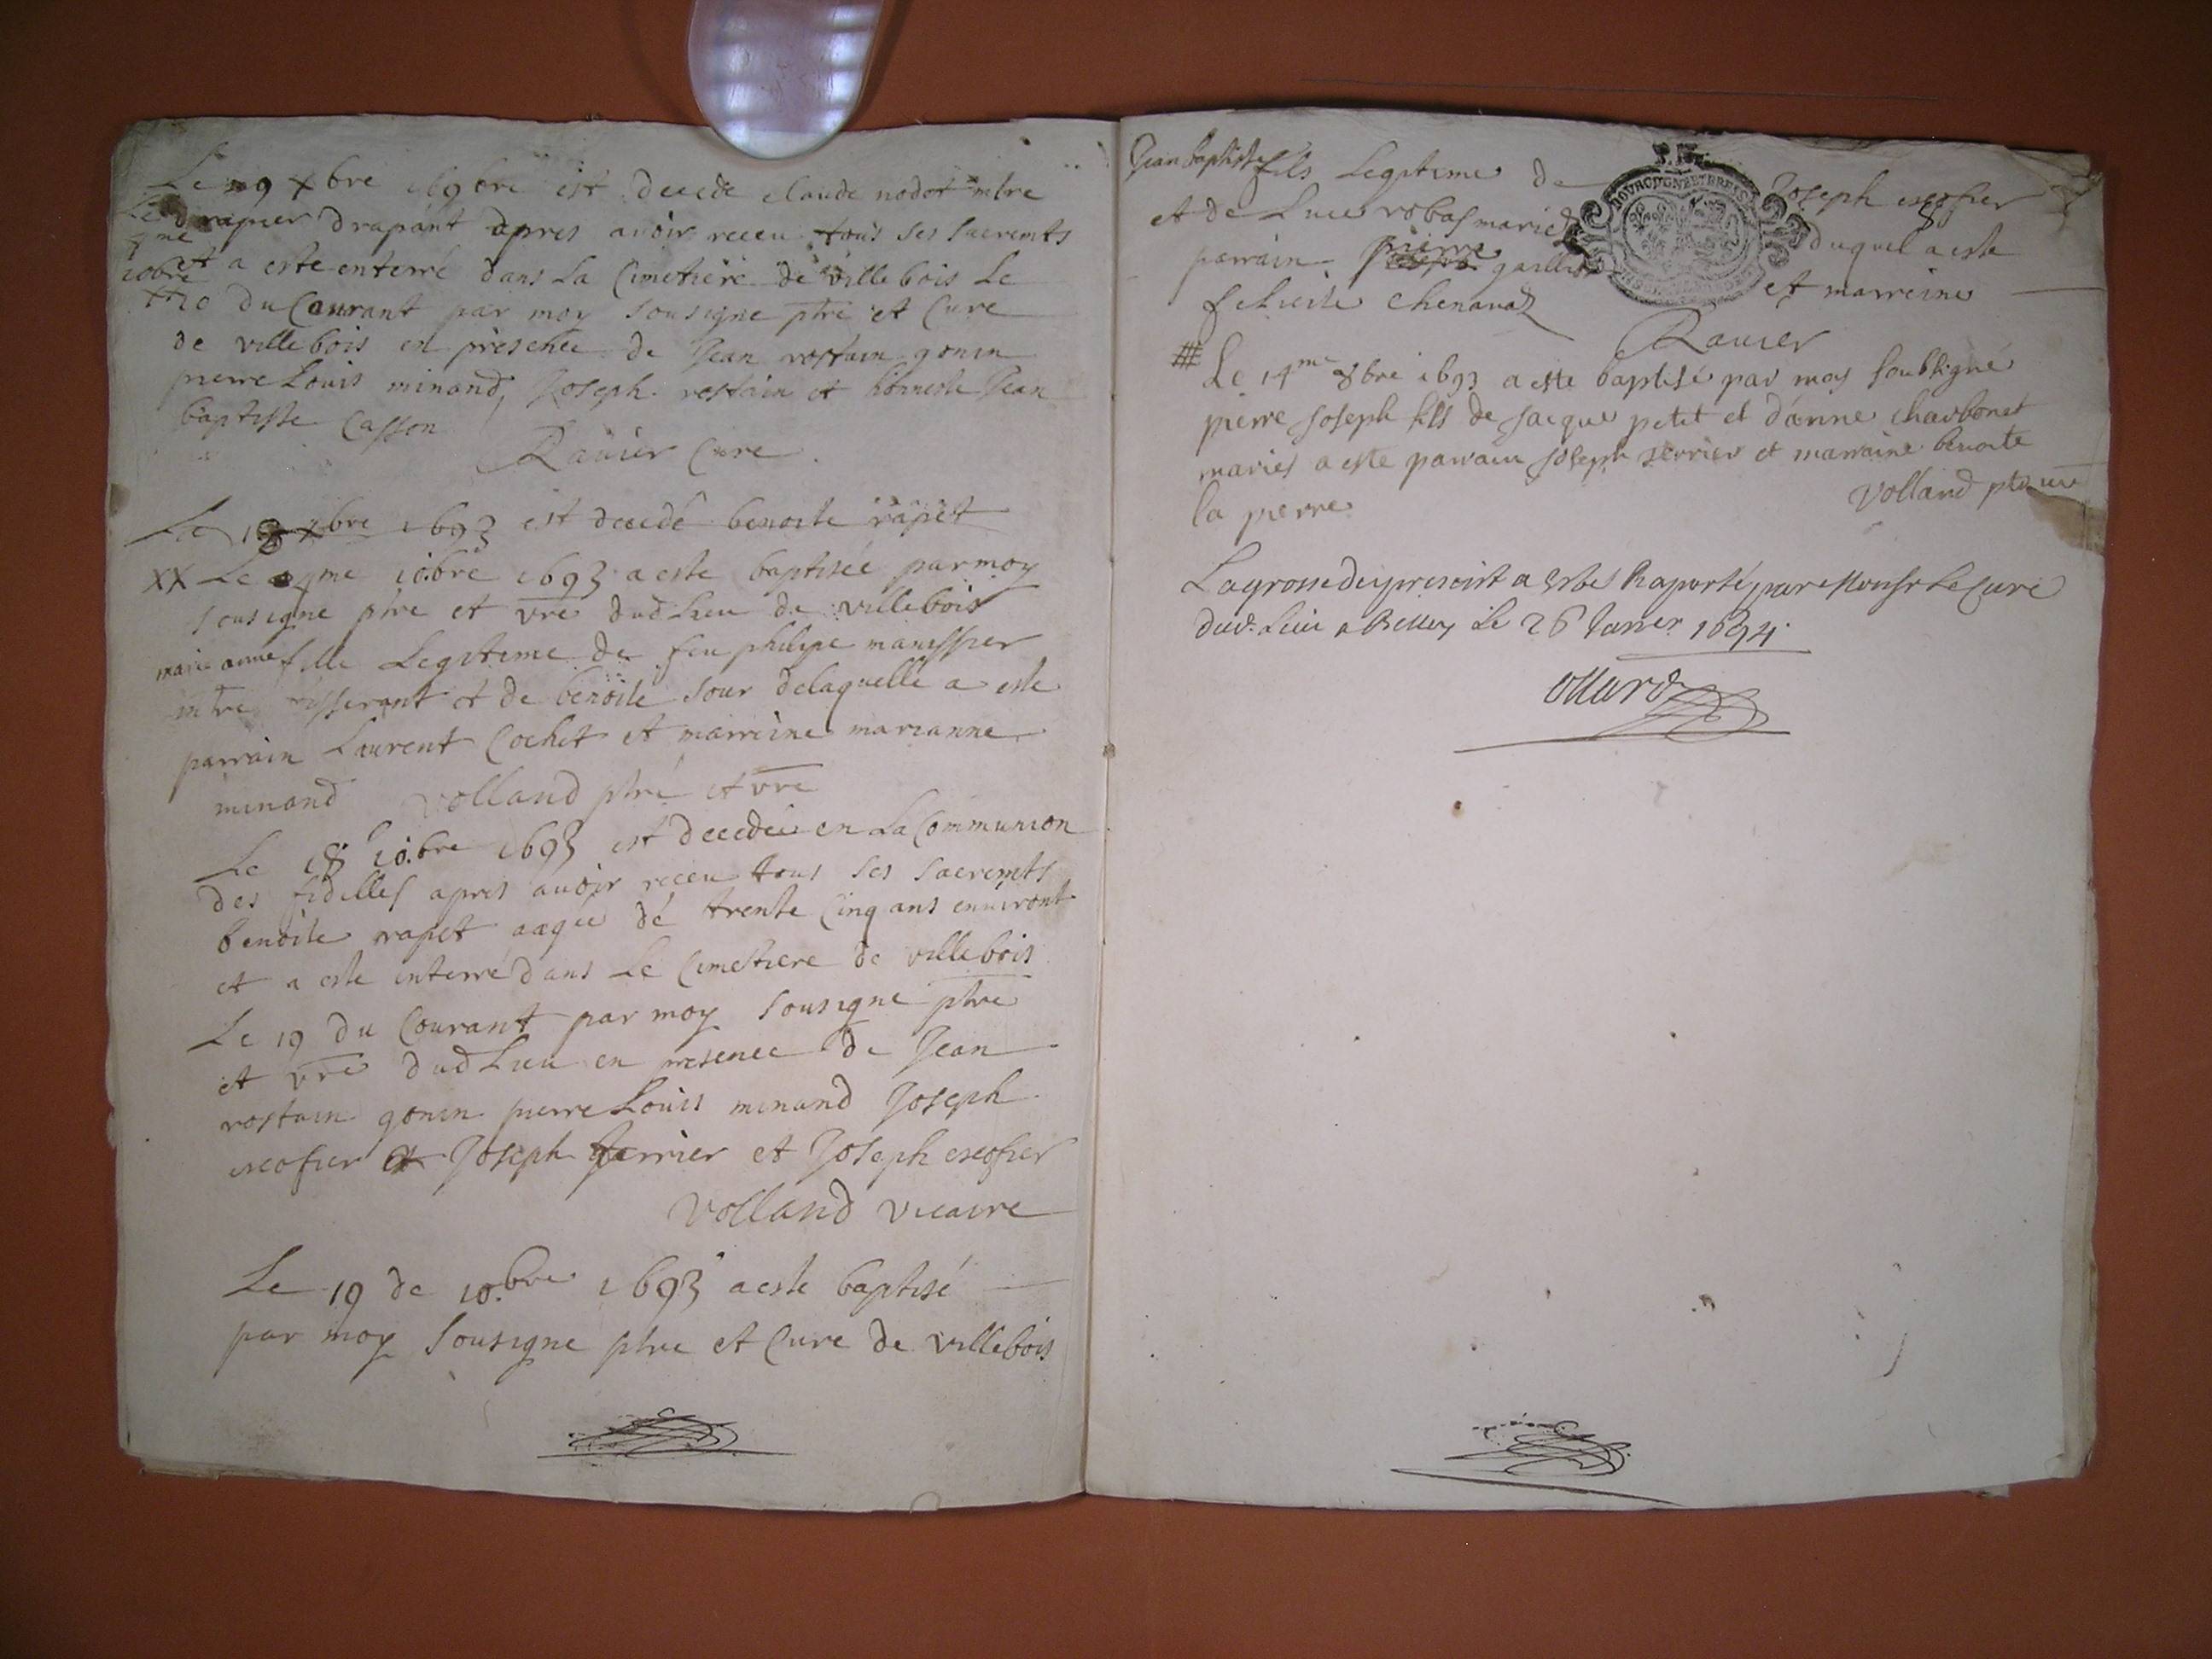 Le 9 xbre est decede claude nodot mtre
drapier drapant apres avoir receu tous ses sacremts
et a este enterré dans la Cimetiere de villebois Le
10 du Courant par moy sousigne ptre et Cure
de villebois en presence de Jean rostain gonin
pierre Louis minand, Joseph rostain et honneste Jean
baptiste Casson
Ravier Cure
Le 18 xbre 1693 est decedé benoite rapet
XX Le 4me 10.bre 1693 a este baptisée par moy
sousigne ptre et vre dud Lieu de villebois
marie anne fille Legitime de feu philipe manissier
mtre tisserant et de benoite sour delaquelle a este
parrain Laurent Cochet et marreine marianne
minand volland ptre et vre
Le 18 10.bre 1693 est decedée en La Communion
des fidelles apres avoir receu tous ses sacremts
benoite rapet aagée de trente Cinq ans environt
et a este enterré dans Le Cimetiere de villebois
Le 19 du Courant par moy sousigne ptre
et vre dud Lieu en presence de Jean
rostain gonin pierre Louis minand Joseph
escofier et Joseph ferrier et Joseph escofier
volland vicaire
Le 19 de 10.bre 1693 a este baptisé
par moy sousigne ptre et Cure de villebois
Jean baptiste fils Legitime de Joseph escofier
et de Luce robas mariés duquel a este
parrain pierre gaillard et marreine
Chenavas
Ravier
# Le 14me xbre 1693 a este baptisé par moy soubsigné
pierre Joseph fils de Jacque petit et d'anne charbonet
mariés a este parrain Joseph serrier et marraine benoite
la pierre volland ptre vre
La grosse du present a este Raporté par Monsr Le Curé
dud. Lieu a Belley Le 26 Janvier 1694.